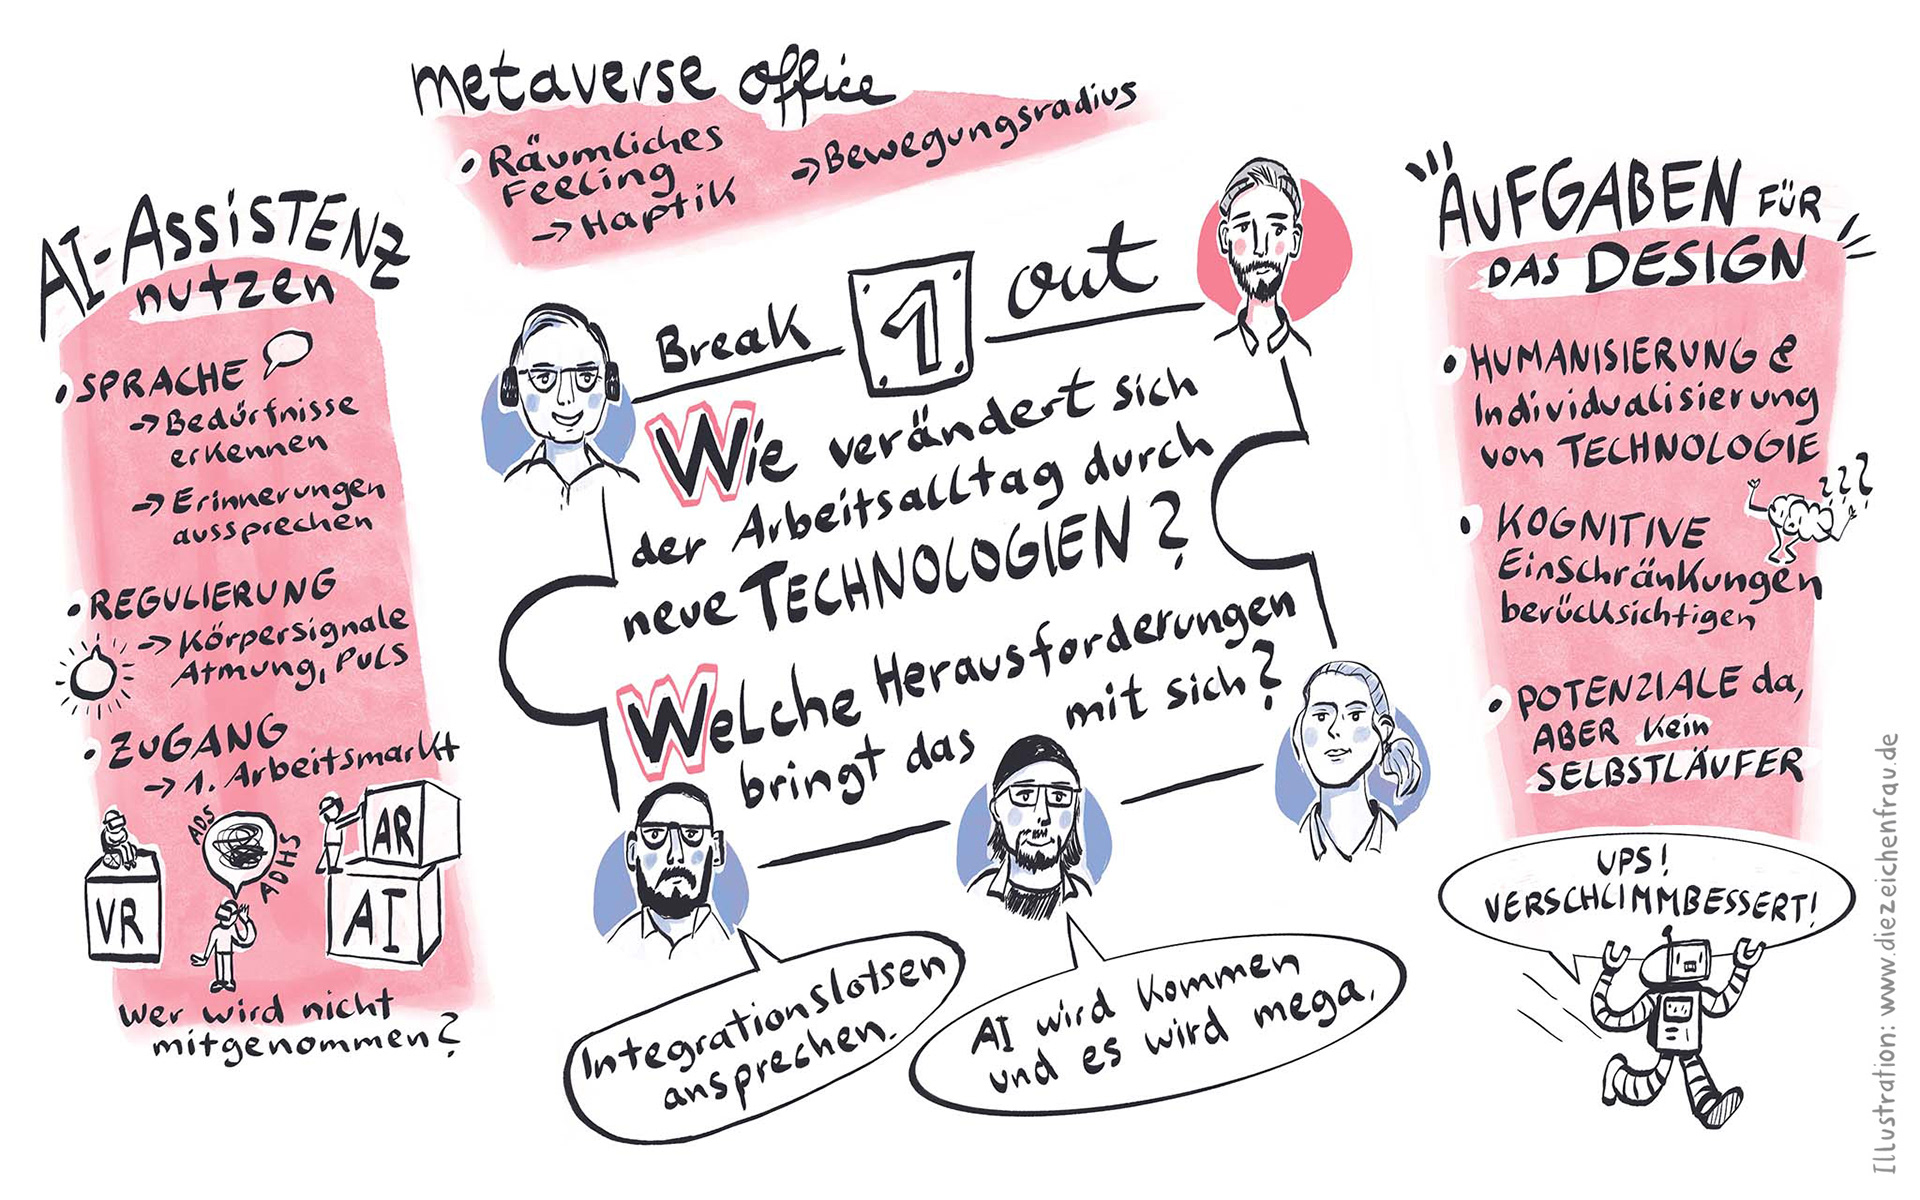 metaverse office
• Räumliches
Feeling
→ Haptik
→ Bewegungsradius
AI-ASSISTENZ
nutzen
• SPRACHE
→ Bedürfnisse
erkennen
→ Erinnerungen
aussprechen
• REGULIERUNG
→ Körpersignale
Atmung, Puls
• ZUGANG
→ 1. Arbeitsmarkt
VR
ADS
ADHS
AR
AI
Wer wird nicht
mitgenommen?
Break 1 out
Wie verändert sich
der Arbeitsalltag durch
neue TECHNOLOGIEN?
Welche Herausforderungen
bringt das mit sich?
Integrationslotsen
ansprechen.
AI wird kommen
und es wird mega.
AUFGABEN FÜR
DAS DESIGN
• HUMANISIERUNG &
Individualisierung
von TECHNOLOGIE
• KOGNITIVE
Einschränkungen
berücksichtigen
???
• POTENZIALE da,
ABER kein
SELBSTLÄUFER
UPS!
VERSCHLIMMBESSERT!
Illustration: www.diezeichenfrau.de